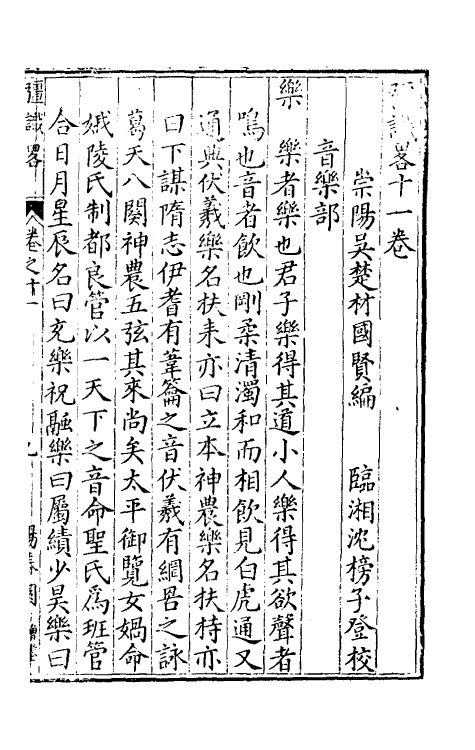 彊識畧十一卷
崇陽吳楚材國賢編　臨湘沈榜子登校
音樂部
樂　樂者樂也君子樂得其道小人樂得其欲聲者
鳴也音者飲也剛柔清濁和而相飲見白虎通又
通典伏羲樂名扶耒亦曰立本神農樂名扶持亦
曰下謀隋志伊耆有葦籥之音伏羲有網罟之詠
葛天八闋神農五弦其來尚矣太平御覽女媧命
娥陵氏制都良管以一天下之音命聖氏爲班管
合日月星辰名曰充樂祝融樂曰屬續少昊樂曰
彊識畧　卷之十一